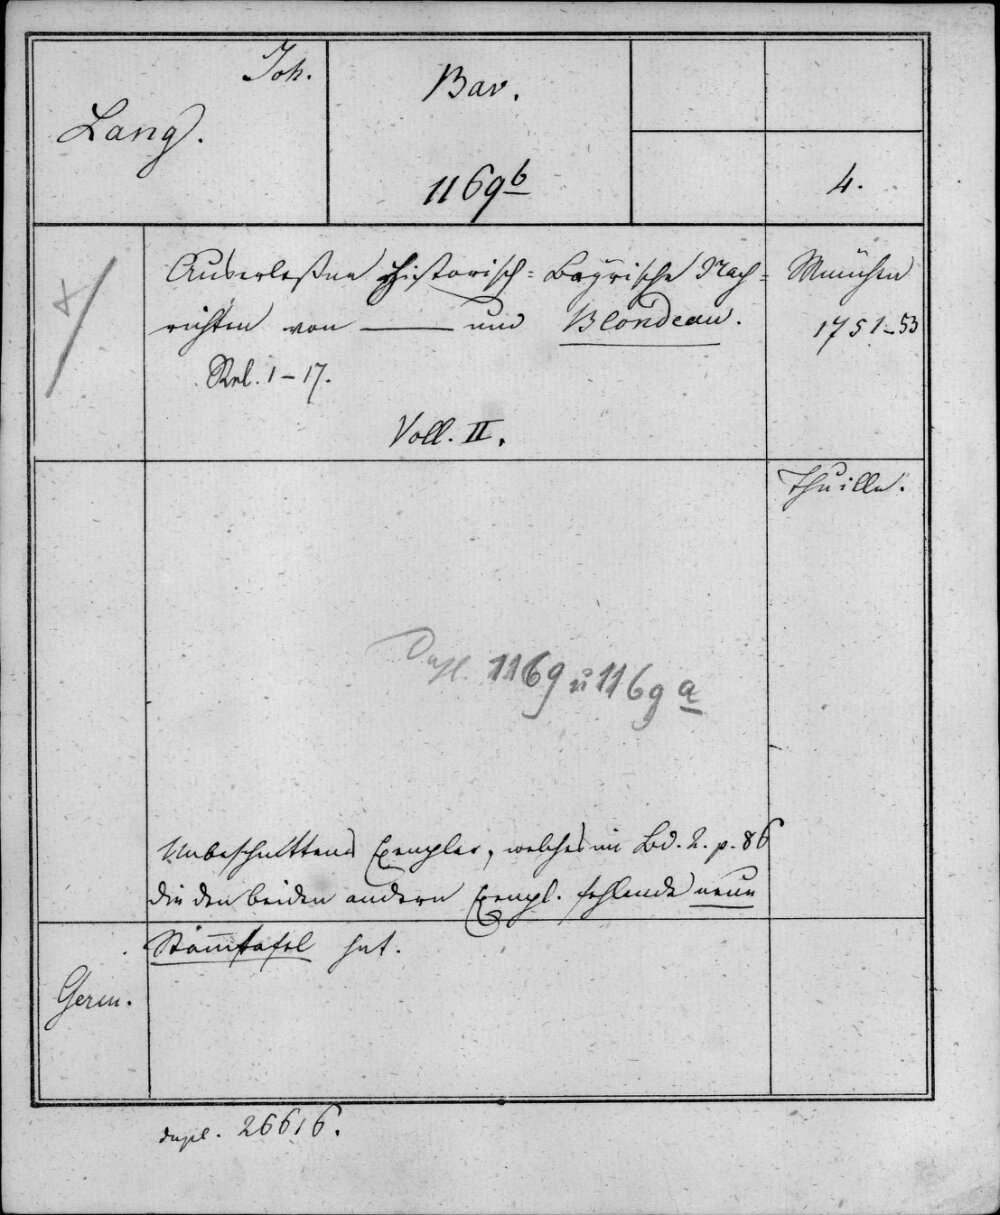 Joh.
Lang.
Bav.
1169b
4.
Auserleßne Historisch-Bayrische Nach-
richten von —— und Blondeau.
Rel. 1-17.
Voll. II.
München
1751-53
Thuille.
Dupl. 1169 u 1169 a
Unbeschnittenes Exemplar, welches im Bd. 2. p. 86
die den beiden andern Exempl. fehlende neue
Stammtafel hat.
Germ.
dupl. 26616.